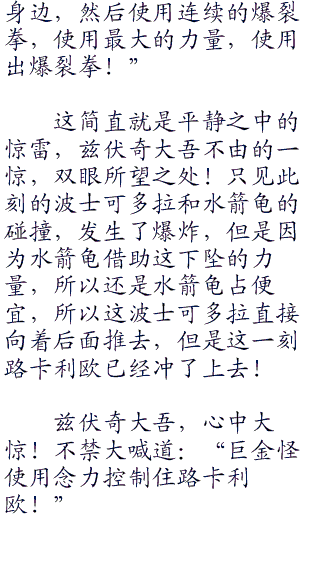 身边，然后使用连续的爆裂
拳，使用最大的力量，使用
出爆裂拳！”
这简直就是平静之中的
惊雷，兹伏奇大吾不由的一
惊，双眼所望之处！只见此
刻的波士可多拉和水箭龟的
碰撞，发生了爆炸，但是因
为水箭龟借助这下坠的力
量，所以还是水箭龟占便
宜，所以这波士可多拉直接
向着后面推去，但是这一刻
路卡利欧已经冲了上去！
兹伏奇大吾，心中大
惊！不禁大喊道：“巨金怪
使用念力控制住路卡利
欧！”